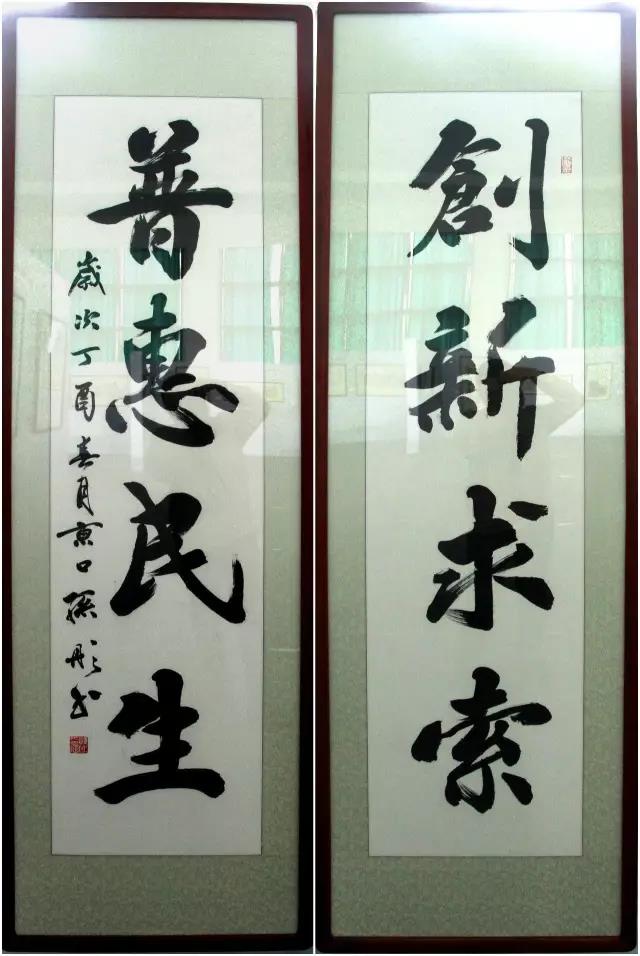 創新求索
普惠民生
歲次丁酉春月京口孫彤書